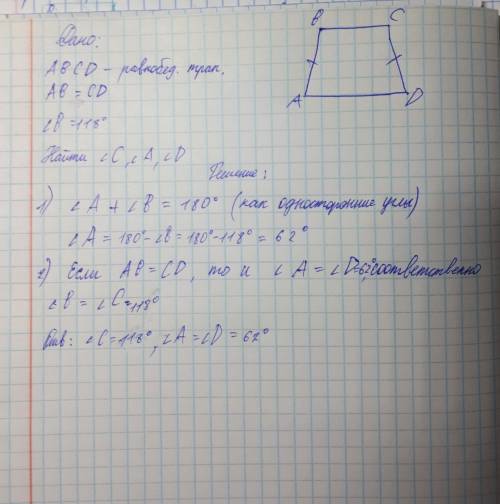 Дано:
ABCD - равнобед. трап.
AB = CD
∠B = 118°
Найти ∠C, ∠A, ∠D
Решение:
1) ∠A + ∠B = 180° (как односторонние углы)
∠A = 180° - ∠B = 180° - 118° = 62°
2) Если AB = CD, то и ∠A = ∠D = 62° соответственно
∠B = ∠C = 118°
Отв: ∠C = 118°, ∠A = ∠D = 62°
B C
A D